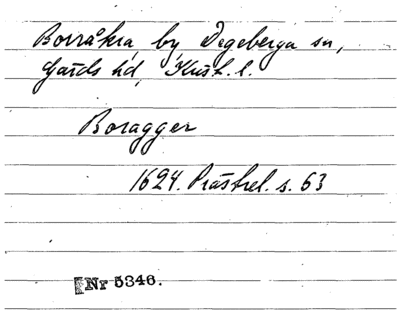 Borråkra, by Degeberga sn,
Gärds hd, Krist. l.
Boragger
1624. Prästrel. s. 63
Nr 5346.